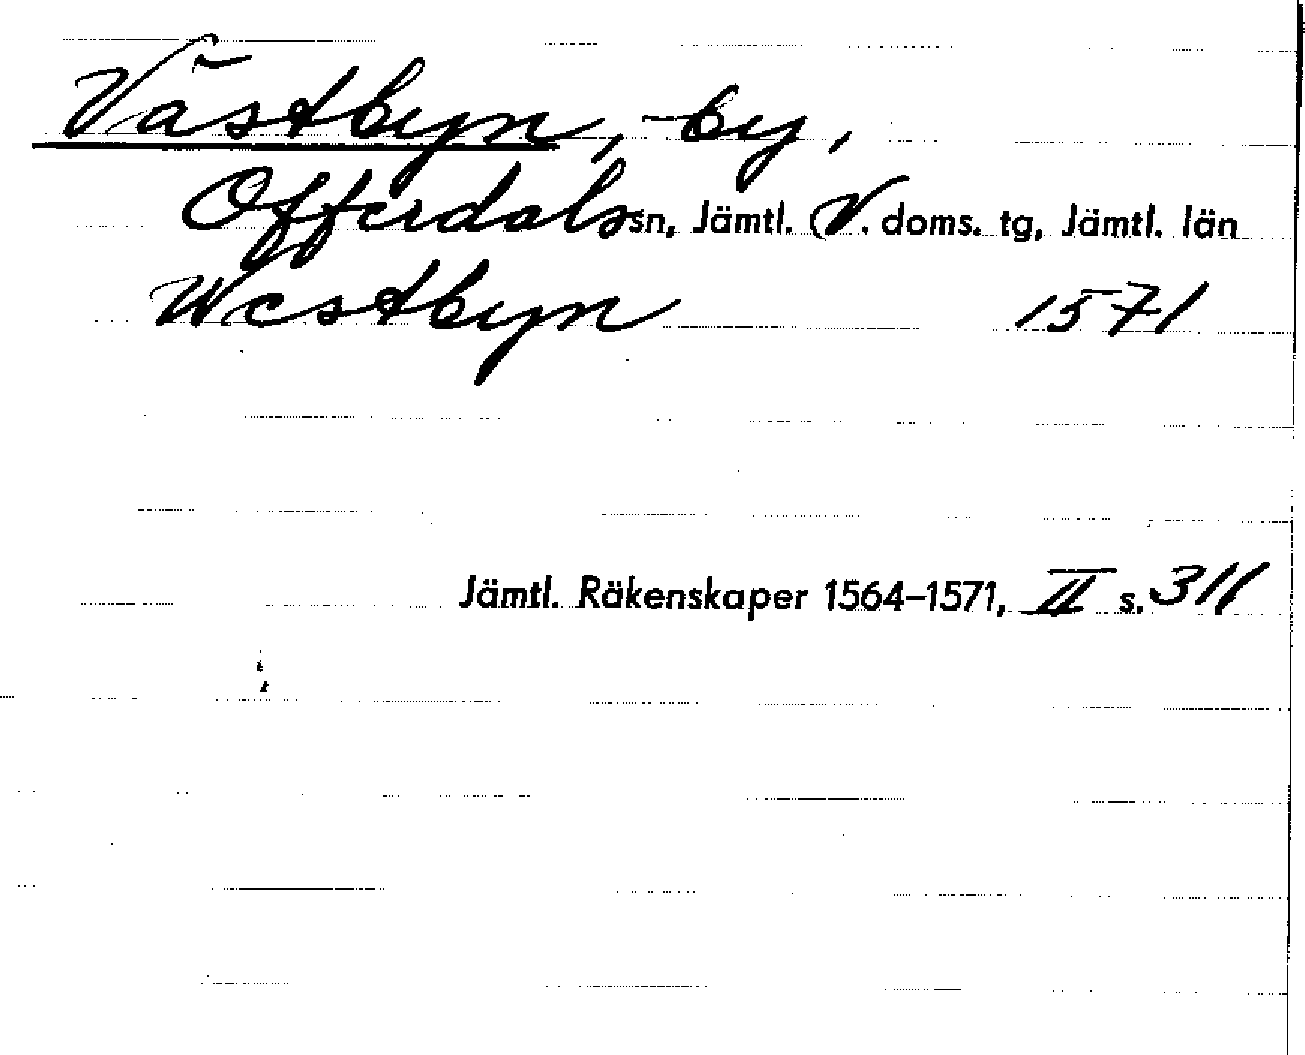 Västbyn, by,
Offerdals sn, Jämtl. (V. doms. tg, Jämtl. län
Westbyn 1571
Jämtl. Räkenskaper 1564–1571, II s. 311